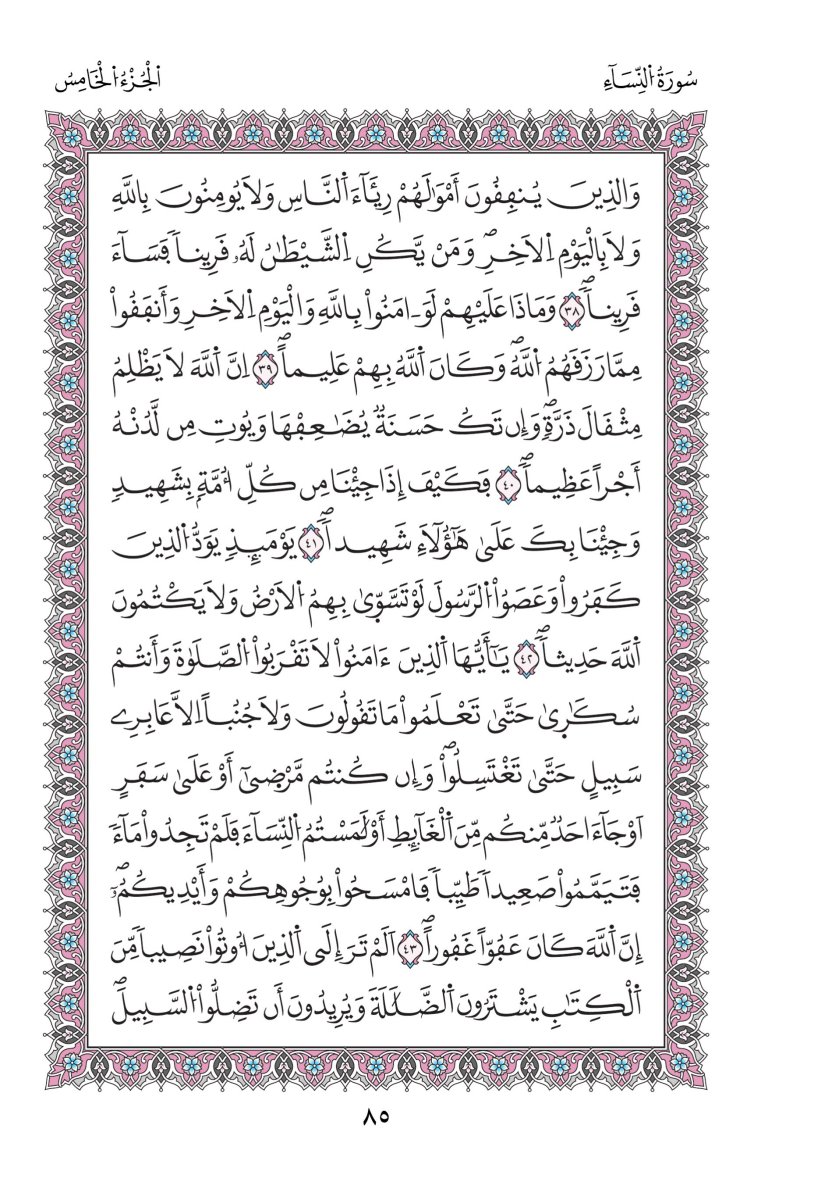 سُورَةُ اُ۬لنِّسَآءِ
اَ۬لْجُزْءُ اُ۬لْخَامِسُ
وَالذِينَ يُنفِقُونَ أَمْوَٰلَهُمْ رِئَآءَ اَ۬لنَّاسِ وَلَا يُومِنُونَ بِاللَّهِ
وَلَا بِالْيَوْمِ اِ۬لَاخِرِۖ وَمَنْ يَّكُنِ اِ۬لشَّيْطَٰنُ لَهُۥ قَرِيناٗ فَسَآءَ
قَرِيناٗۖ ٣٨ وَمَاذَا عَلَيْهِمْ لَوَ ـ امَنُواْ بِاللَّهِ وَالْيَوْمِ اِ۬لَاخِرِ وَأَنفَقُواْ
مِمَّا رَزَقَهُمُ اُ۬للَّهُۖ وَكَانَ اَ۬للَّهُ بِهِمْ عَلِيماًۖ ٣٩ اِنَّ اَ۬للَّهَ لَا يَظْلِمُ
مِثْقَالَ ذَرَّةٖۖ وَإِن تَكُ حَسَنَةٞ يُضَٰعِفْهَا وَيُوتِ مِن لَّدُنْهُ
أَجْراً عَظِيماٗۖ ٤٠ فَكَيْفَ إِذَا جِئْنَا مِن كُلِّ أُمَّةِۢ بِشَهِيدٖ
وَجِئْنَا بِكَ عَلَىٰ هَٰٓؤُلَآءِ شَهِيداٗۖ ٤١ يَوْمَئِذٖ يَوَدُّ اُ۬لذِينَ
كَفَرُواْ وَعَصَوُاْ اُ۬لرَّسُولَ لَوْ تَسَّوّ۪ىٰ بِهِمُ اُ۬لَارْضُ وَلَا يَكْتُمُونَ
اَ۬للَّهَ حَدِيثاٗۖ ٤٢ يَٰٓأَيُّهَا اَ۬لذِينَ ءَامَنُواْ لَا تَقْرَبُواْ اُ۬لصَّلَوٰةَ وَأَنتُمْ
سُكَٰر۪ىٰ حَتَّىٰ تَعْلَمُواْ مَا تَقُولُونَ وَلَا جُنُباً اِلَّا عَابِرِے
سَبِيلٍ حَتَّىٰ تَغْتَسِلُواْۖ وَإِن كُنتُم مَّرْض۪ىٰٓ أَوْ عَلَىٰ سَفَرٍ
اَوْ جَآءَ احَدٞ مِّنكُم مِّنَ اَ۬لْغَآئِطِ أَوْ لَٰمَسْتُمُ اُ۬لنِّسَآءَ فَلَمْ تَجِدُواْ مَآءٗ
فَتَيَمَّمُواْ صَعِيداٗ طَيِّباٗ فَامْسَحُواْ بِوُجُوهِكُمْ وَأَيْدِيكُمُۥٓۖ
إِنَّ اَ۬للَّهَ كَانَ عَفُوّاً غَفُوراًۖ ٤٣ اَلَمْ تَرَ إِلَى اَ۬لذِينَ أُوتُواْ نَصِيباٗ مِّنَ
اَ۬لْكِتَٰبِ يَشْتَرُونَ اَ۬لضَّلَٰلَةَ وَيُرِيدُونَ أَن تَضِلُّواْ اُ۬لسَّبِيلَۖ
٨٥